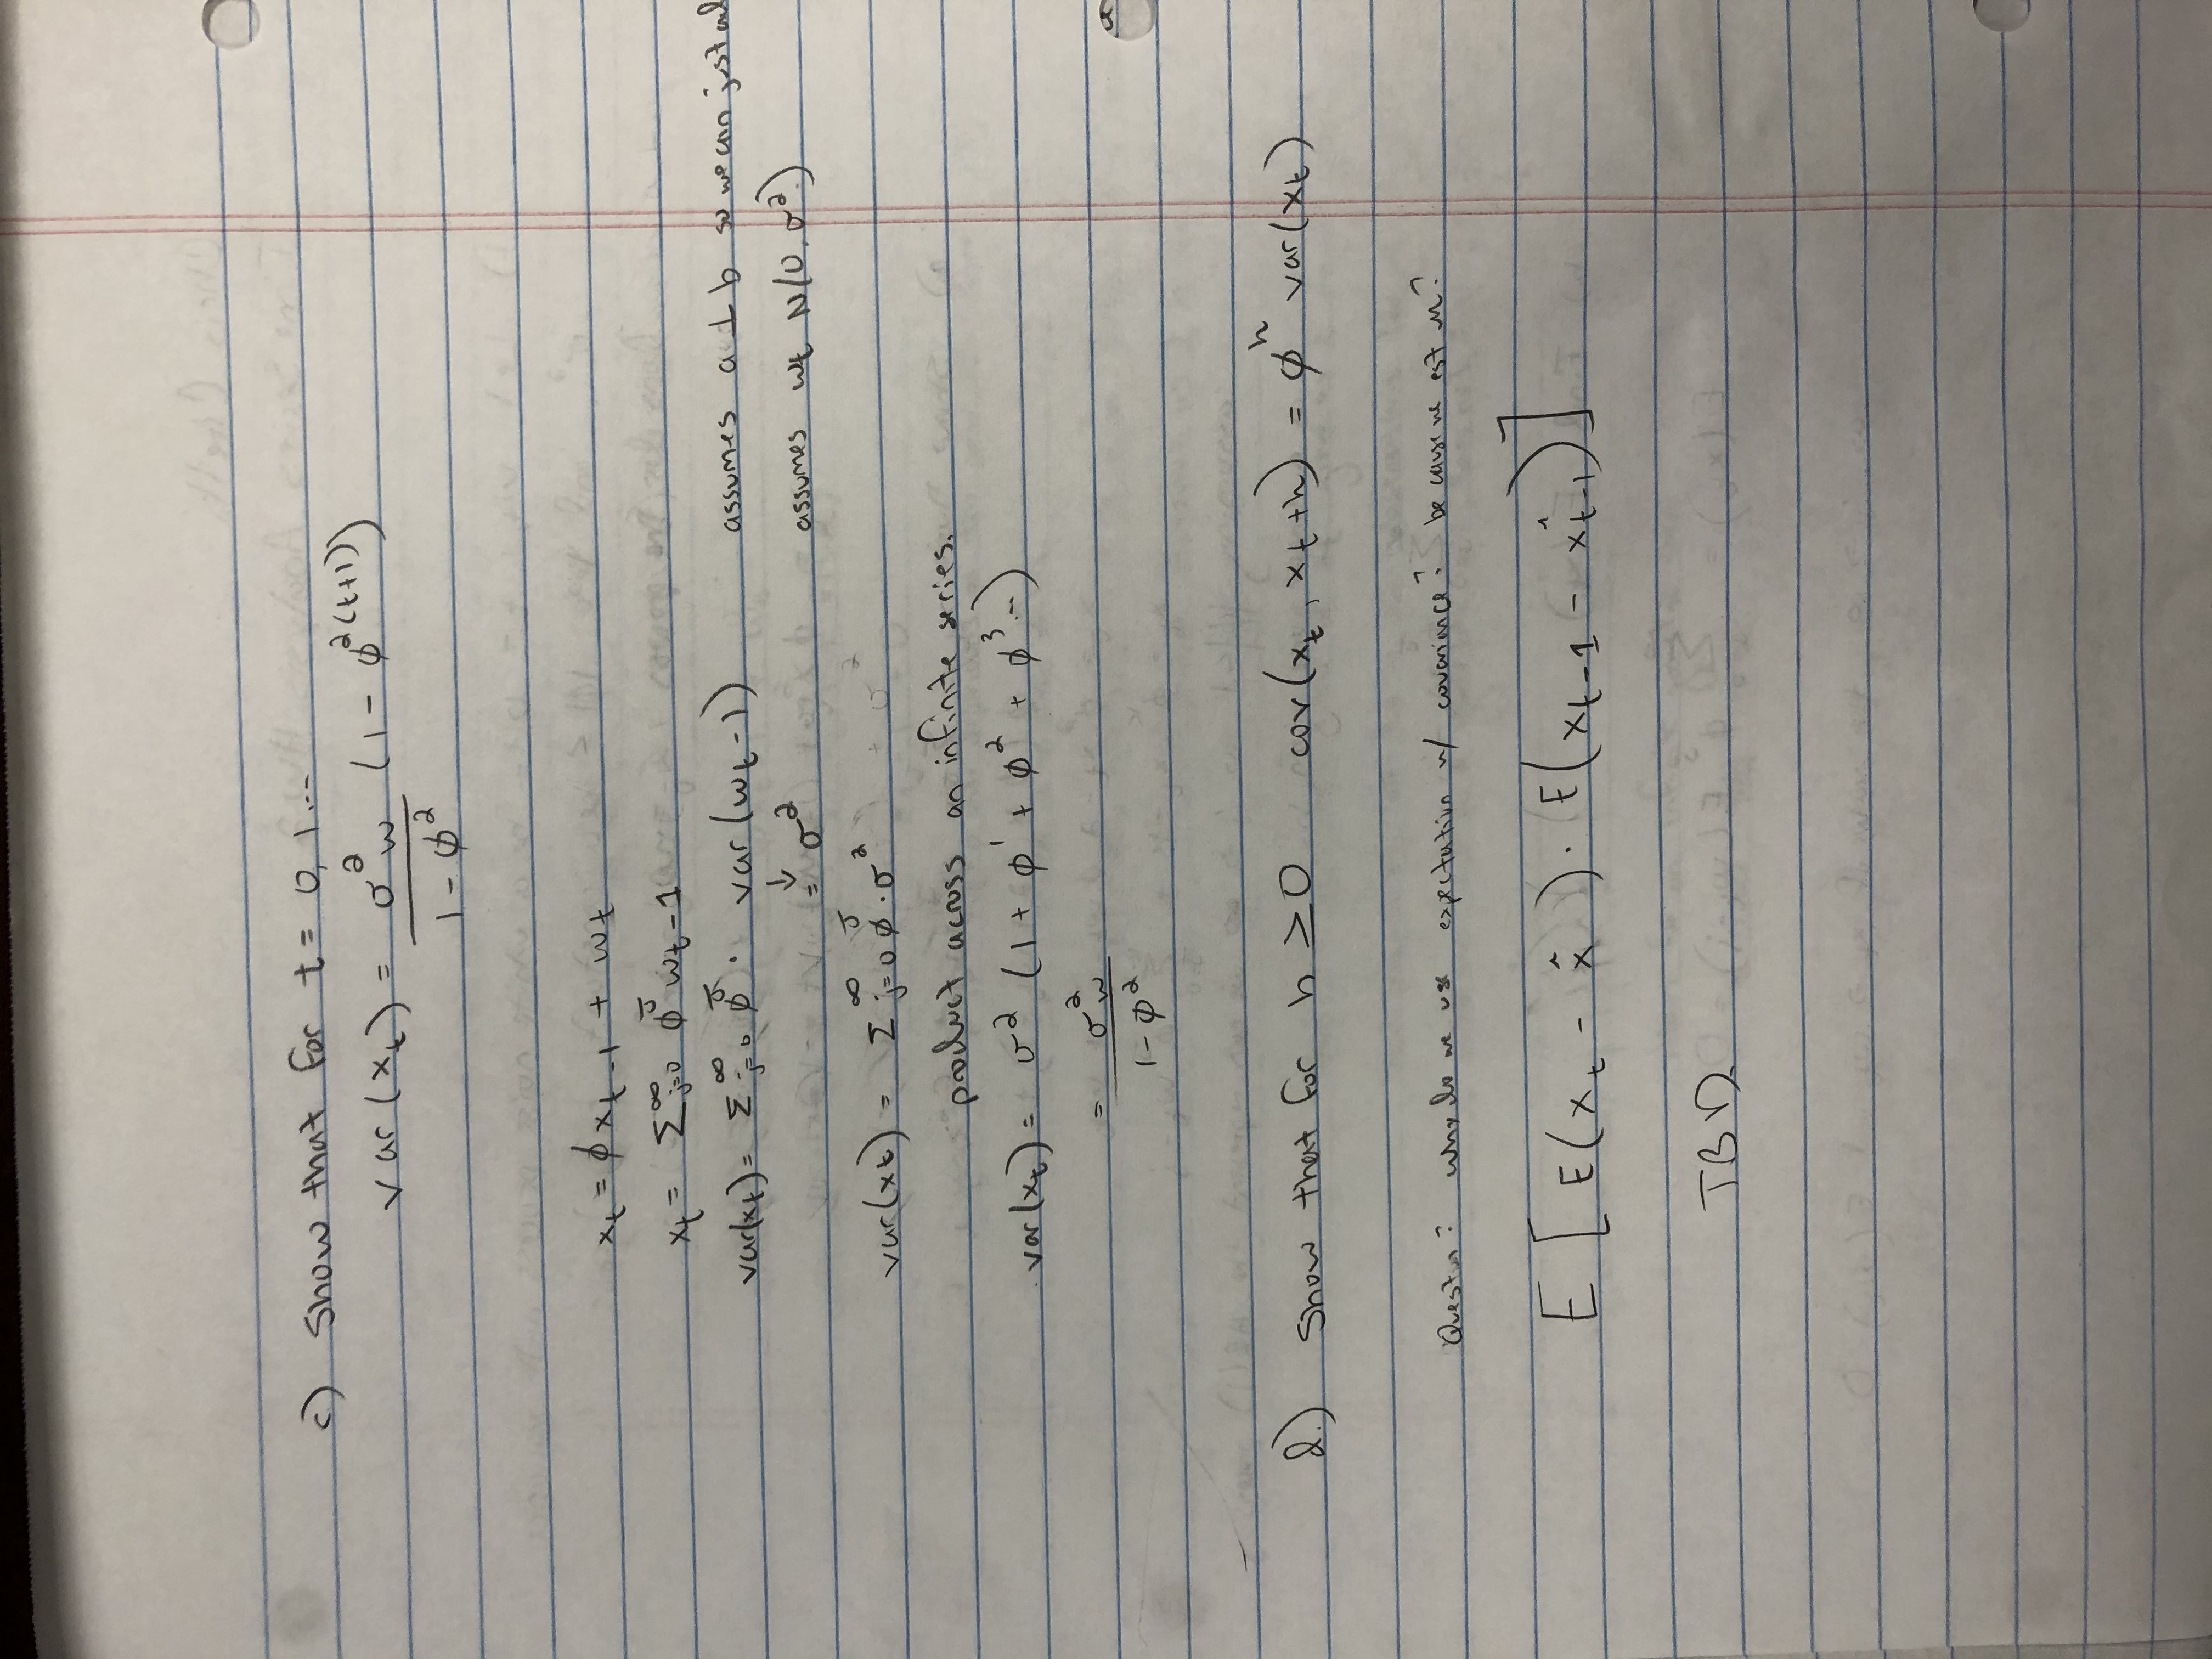 c) Show that for t = 0, 1...
var(x_t) = σ²_w / (1 - φ²) (1 - φ^{2(t+1)})
x_t = φ x_{t-1} + w_t
x_t = Σ^∞_{j=0} φ^j w_t-1
var(x_t) = Σ^∞_{j=0} φ^j · var(w_t-1) assumes a ⊥ b so we can just
↓ = σ² assumes w_t N(0, σ²)
var(x_t) = Σ^∞_{j=0} φ^j · σ²
product across an infinite series.
var(x_t) = σ² (1 + φ^1 + φ² + φ³ ...)
= σ²_w / (1 - φ²)
d.) Show that for h ≥ 0 cov(x_t, x_t+h) = φ^h var(x_t)
why do we use expectation w/ covariance? because we est
E [ E(x_t - x̂) · E(x_{t-1} - x̂_{t-1}) ]
TBD